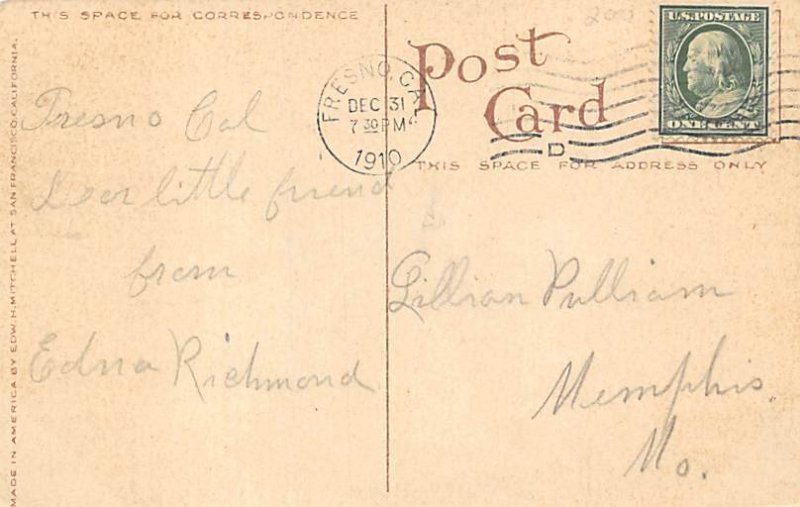 THIS SPACE FOR CORRESPONDENCE
Fresno Cal
Dear little friend
from
Edna Richmond
MADE IN AMERICA BY EDW. H. MITCHELL AT SAN FRANCISCO, CALIFORNIA.
Post
Card
THIS SPACE FOR ADDRESS ONLY
FRESNO, CAL.
DEC 31
7 30 PM
1910
D
U.S. POSTAGE
ONE CENT
Lillian Pulliam
Memphis.
Mo.